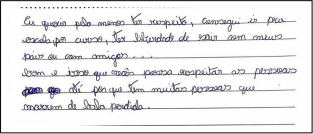 Eu queria pelo menos ter respeito, consegui ir pra
escola, por curso, ter liberdade de sair sem meus
pais ou sem amigos...
bom e isso que eu possa respeitar as pessoas
até por que tem muitas pessoas que
morrem de bala perdida.